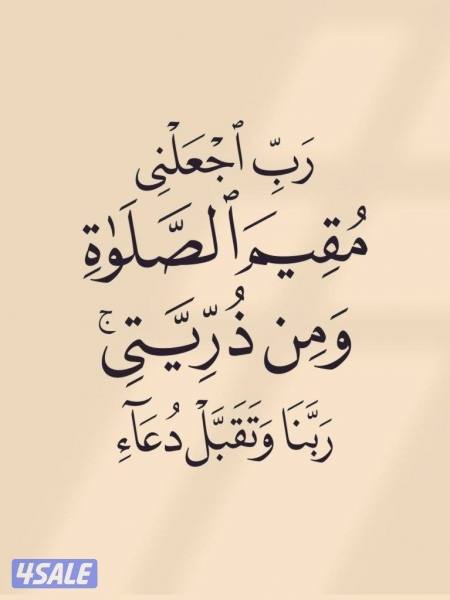 رَبِّ ٱجْعَلْنِى
مُقِيمَ ٱلصَّلَوٰةِ
وَمِن ذُرِّيَّتِى ۚ
رَبَّنَا وَتَقَبَّلْ دُعَآءِ
4SALE